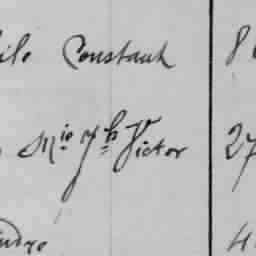 ile Constant 8
Mie Jh Victor 27
indre 4